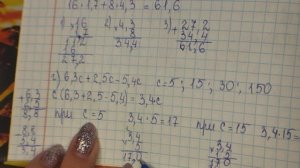 16·1,7+8·4,3=61,6
1) ×16
1,7
16
27,2
2) ×4,3
8
34,4
3) +27,2
34,4
61,6
г) 6,3с+2,5с-5,4с с=5; 15; 30; 150
с(6,3+2,5-5,4)=3,4с
+6,3
2,5
8,8
8,8
при с=5 3,4·5=17
3,4
5
при с=15 3,4·15=
3,4